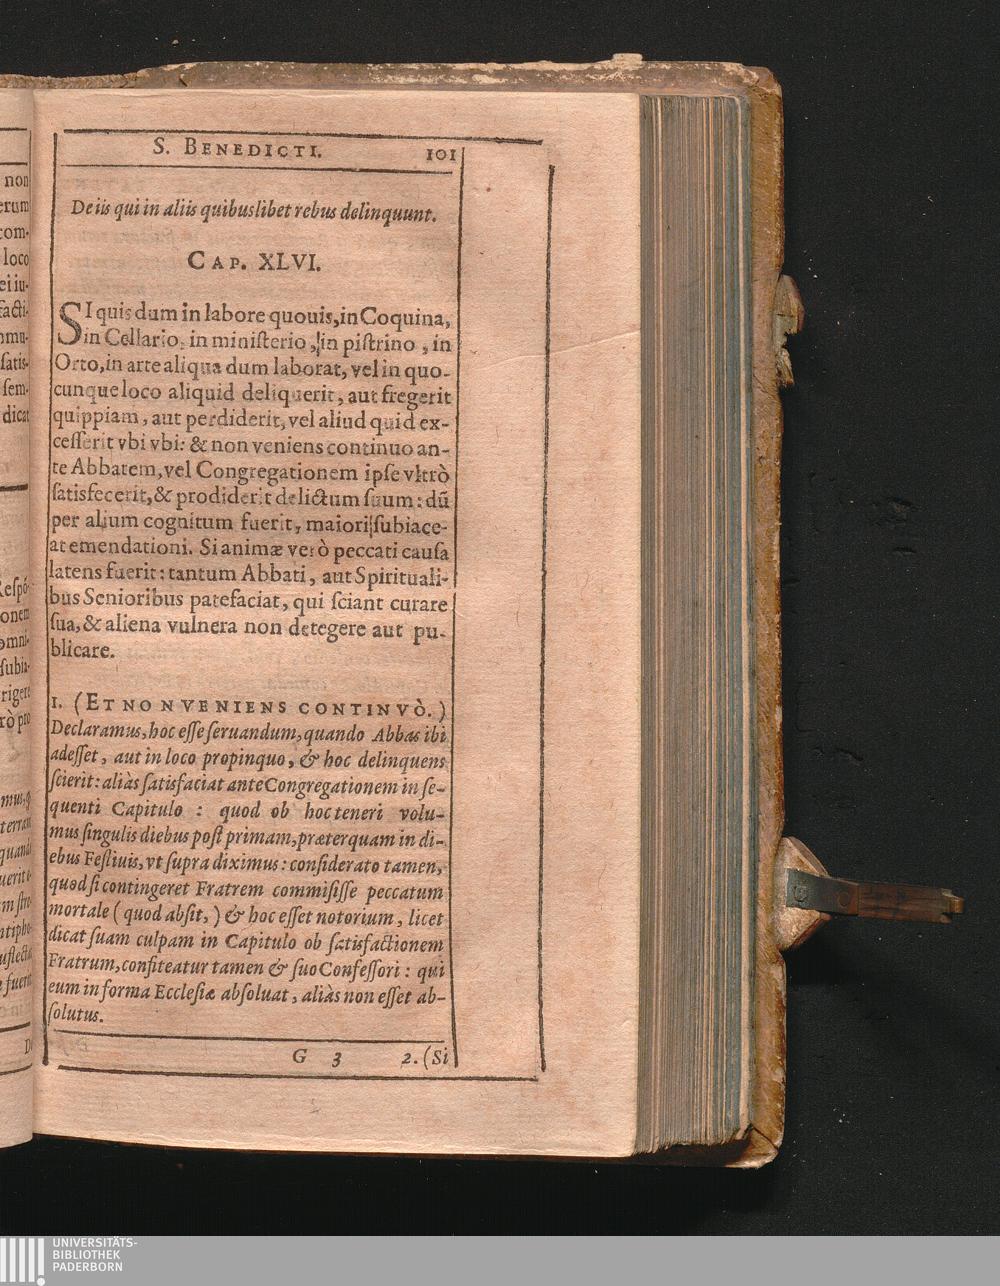 S. BENEDICTI. 101
De iis qui in aliis quibuslibet rebus delinquunt.
CAP. XLVI.
SI quis dum in labore quouis, in Coquina,
in Cellario, in miniſterio, in piſtrino, in
Orto, in arte aliqua dum laborat, vel in quo-
cunque loco aliquid deliquerit, aut fregerit
quippiam, aut perdiderit, vel aliud quid ex-
ceſſerit vbi vbi: & non veniens continuo an-
te Abbatem, vel Congregationem ipſe vltrò
ſatisfecerit, & prodiderit delictum ſuum: dū
per alium cognitum fuerit, maiori ſubiace-
at emendationi. Si animæ verò peccati cauſa
latens fuerit: tantum Abbati, aut Spirituali-
bus Senioribus patefaciat, qui ſciant curare
ſua, & aliena vulnera non detegere aut pu-
blicare.
1. (ET NON VENIENS CONTINVÒ.)
Declaramus, hoc eſſe ſeruandum, quando Abbas ibi
adeſſet, aut in loco propinquo, & hoc delinquens
ſcierit: aliàs ſatisfaciat ante Congregationem in ſe-
quenti Capitulo : quod ob hoc teneri volu-
mus ſingulis diebus poſt primam, præterquam in di-
ebus Feſtiuis, vt ſupra diximus: conſiderato tamen,
quod ſi contingeret Fratrem commiſiſſe peccatum
mortale (quod abſit,) & hoc eſſet notorium, licet
dicat ſuam culpam in Capitulo ob ſatisfactionem
Fratrum, confiteatur tamen & ſuo Confeſſori: qui
eum in forma Eccleſiæ abſoluat, aliàs non eſſet ab-
ſolutus.
G 3 2. (Si
non
erum
com-
loco
ei iu-
facti-
mmu-
ſatis-
ſem-
dicat
Reſpó-
onem
omni-
ſubia-
rigere
rò pro
UNIVERSITÄTS-
BIBLIOTHEK
PADERBORN